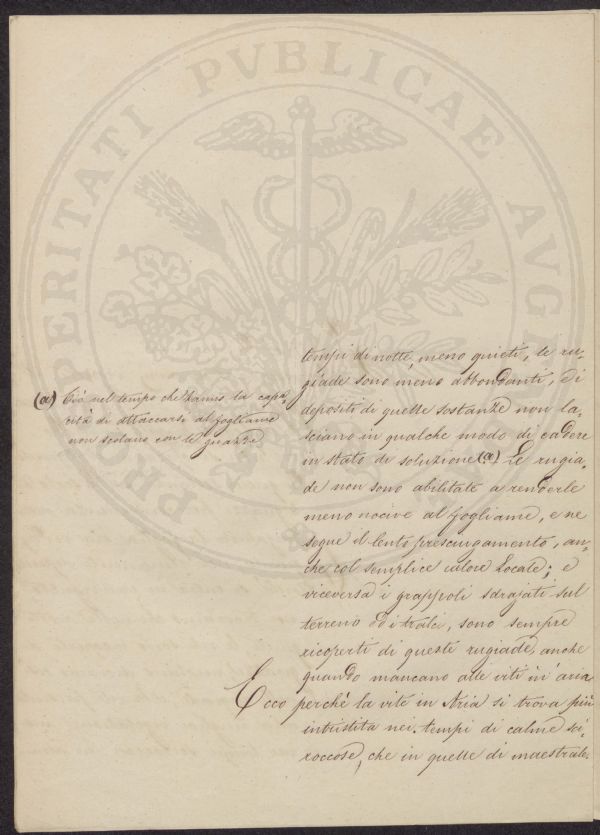 PROSPERITATI PVBLICAE AVGENDAE
tempi di notte, meno quieti, le ru-
giade sono meno abbondanti, e i
depositi di quelle sostanze non la-
sciano in qualche modo di cadere
in stato di soluzione (a) Le rugia-
de non sono abilitate a renderle
meno nocive al fogliame, e ne
segue il lento prosciugamento, an-
che col semplice calore locale; e
viceversa i grappoli sdrajati sul
terreno od i tralci, sono sempre
ricoperti di queste rugiade, anche
quando mancano alle viti in aria
Ecco perchè la vite in Aria si trova più
intristita nei tempi di calme sci-
roccose, che in quelle di maestrale
(a) Ciò nel tempo che hanno la capa-
cità di attaccarsi al fogliame
non scolano con le guazze